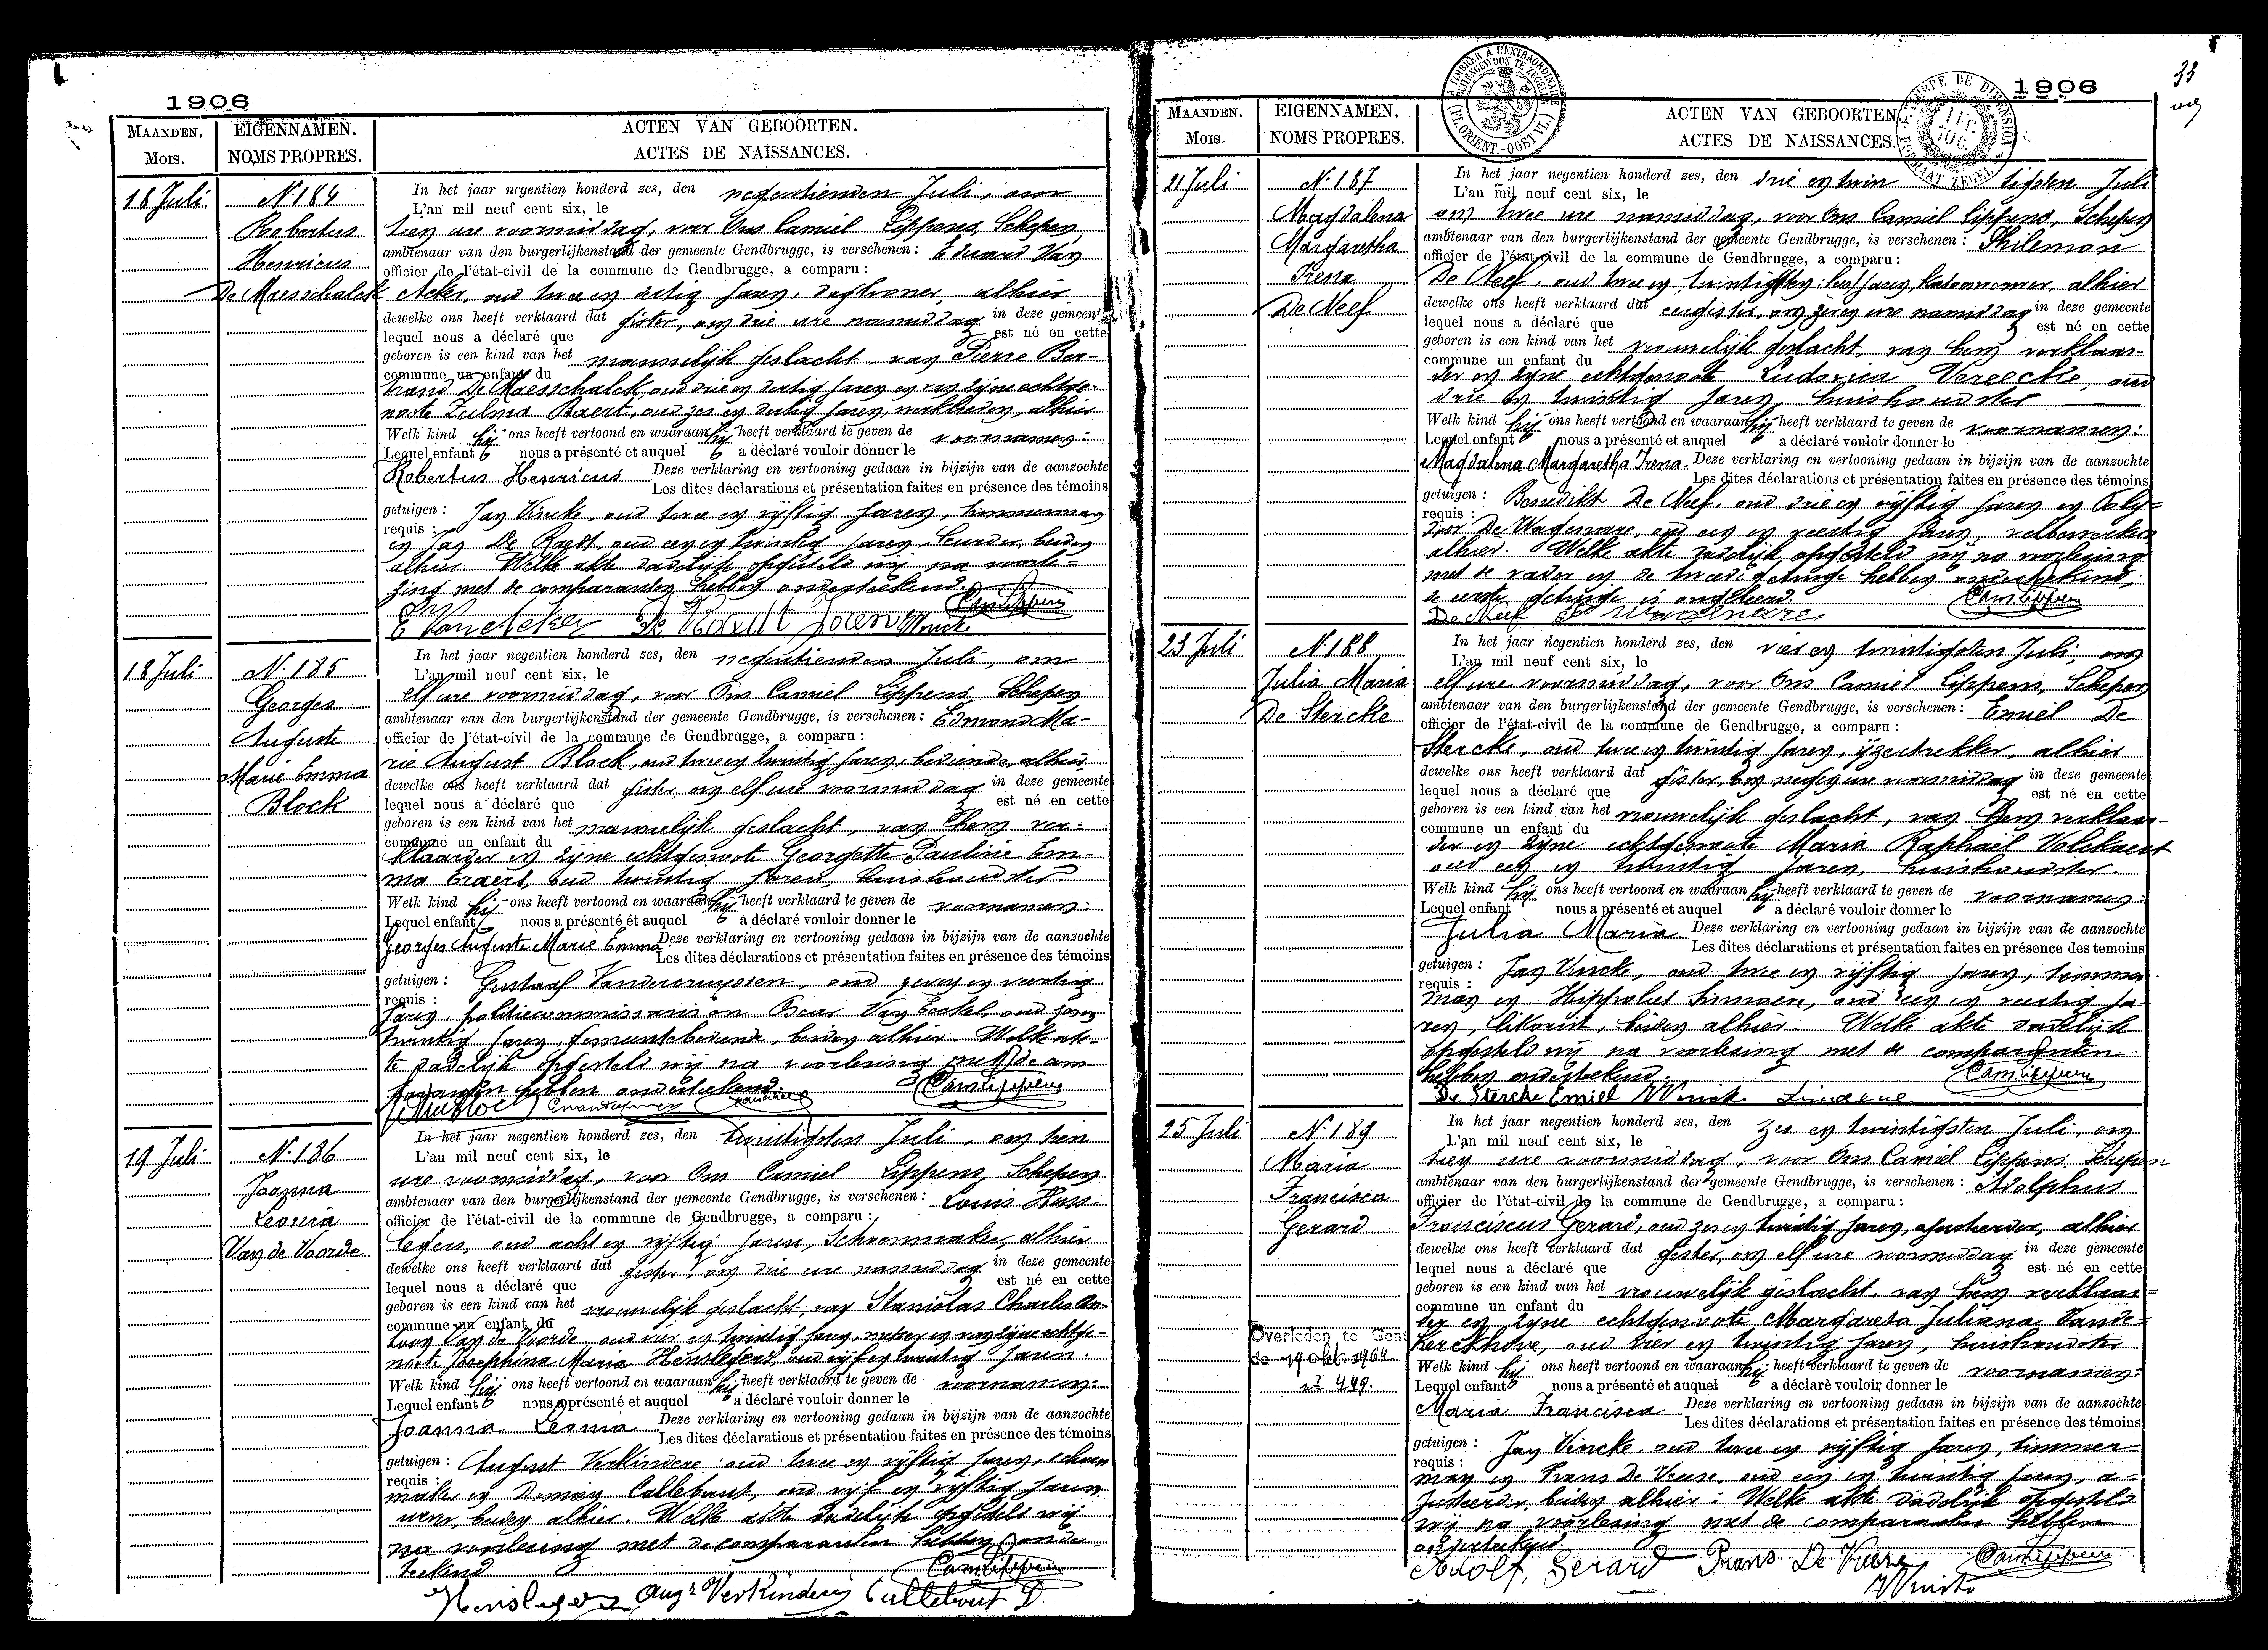 1906
MAANDEN.
Mois.
EIGENNAMEN.
NOMS PROPRES.
ACTEN VAN GEBOORTEN.
ACTES DE NAISSANCES.
18 Juli
N. 184
Robertus
Henricus
De Maesschalck
In het jaar negentien honderd zes, den negentienden Juli, om
L'an mil neuf cent six, le
tien ure voormiddag, voor Ons Camiel Lippens, Schepen,
ambtenaar van den burgerlijkenstand der gemeente Gendbrugge, is verschenen : Eduard Van
officier de l'état-civil de la commune de Gendbrugge, a comparu :
Acker, oud twee en dertig jaren, alhier
dewelke ons heeft verklaard dat gister, om drie ure namiddag in deze gemeente
lequel nous a déclaré que est né en cette
geboren is een kind van het mannelijk geslacht, van Pierre Ber-
commune un enfant du
trand De Maesschalck, oud drie en dertig jaren en van zijne echtge-
noote Zulma Baert, oud zes en dertig jaren, alhier
Welk kind hij ons heeft vertoond en waaraan hij heeft verklaard te geven de voornamen:
Lequel enfant nous a présenté et auquel a déclaré vouloir donner le
Robertus Henricus Deze verklaring en vertooning gedaan in bijzijn van de aanzochte
Les dites déclarations et présentation faites en présence des témoins
getuigen : Jan Vincke, oud twee en vijftig jaren, timmerman
requis :
en Jan De Raedt, oud een en twintig jaren, beiden
alhier. Welke akte dadelijk opgesteld wij na voorle-
zing met de comparanten hebben onderteekend.
E Van Acker
18 Juli
N. 185
Georges
Auguste
Marie Emma
Block
In het jaar negentien honderd zes, den negentienden Juli, om
L'an mil neuf cent six, le
elf ure voormiddag, voor Ons Camiel Lippens, Schepen
ambtenaar van den burgerlijkenstand der gemeente Gendbrugge, is verschenen : Edmond Ma-
officier de l'état-civil de la commune de Gendbrugge, a comparu :
rie August Block, oud twee en twintig jaren, bediende, alhier
dewelke ons heeft verklaard dat gister om elf ure voormiddag in deze gemeente
lequel nous a déclaré que est né en cette
geboren is een kind van het mannelijk geslacht, van hem ver-
commune un enfant du
klaarder en zijne echtgenoote Georgette Pauline Em-
ma, oud twintig jaren, huishoudster
Welk kind hij ons heeft vertoond en waaraan hij heeft verklaard te geven de voornamen:
Lequel enfant nous a présenté et auquel a déclaré vouloir donner le
Georges Auguste Marie Emma Deze verklaring en vertooning gedaan in bijzijn van de aanzochte
Les dites déclarations et présentation faites en présence des témoins
getuigen : Gustaaf Vandercruyssen, oud zeven en veertig
requis :
jaren, politiecommissaris en Oscar Van, oud zeven
twintig jaren, gemeentebediende, beiden alhier. Welke ak-
te dadelijk opgesteld wij na voorlezing met de com-
paranten hebben onderteekend.
19 Juli
N. 186
Joanna
Leonia
Van de Voorde
In het jaar negentien honderd zes, den twintigsten Juli, om tien
L'an mil neuf cent six, le
ure voormiddag, voor Ons Camiel Lippens, Schepen
ambtenaar van den burgerlijkenstand der gemeente Gendbrugge, is verschenen : Louis Hens-
officier de l'état-civil de la commune de Gendbrugge, a comparu :
legers, oud acht en vijftig jaren, Schoenmaker, alhier
dewelke ons heeft verklaard dat gister, om drie ure namiddag in deze gemeente
lequel nous a déclaré que est né en cette
geboren is een kind van het vrouwelijk geslacht, van Stanislas Charles An-
commune un enfant du
toon Van de Voorde oud vier en twintig jaren, metser en van zijne echtge-
noote Josephina Maria Henslegers, oud vijf en twintig jaren.
Welk kind hij ons heeft vertoond en waaraan hij heeft verklaard te geven de voornamen:
Lequel enfant nous a présenté et auquel a déclaré vouloir donner le
Joanna Leonia Deze verklaring en vertooning gedaan in bijzijn van de aanzochte
Les dites déclarations et présentation faites en présence des témoins
getuigen : August Verkindere oud twee en vijftig jaren, schoen
requis :
maker en Damien Callebaut, oud vijf en vijftig jaren
wever, beiden alhier. Welke akte dadelijk opgesteld wij
na voorlezing met de comparanten hebben onder
teekend
Henslegers Augt Verkinderen Callebout D
1906
33
TIMBRER A L'EXTRAORDINAIRE
BUITENGEWOON TE ZEGELEN
(FL. ORIENT.-OOST VL.)
MAANDEN.
Mois.
EIGENNAMEN.
NOMS PROPRES.
ACTEN VAN GEBOORTEN
ACTES DE NAISSANCES.
21 Juli
N. 187
Magdalena
Margaretha
Irena
De Neef
In het jaar negentien honderd zes, den drie en twin tigsten Juli
L'an mil neuf cent six, le
om twee ure namiddag, voor Ons Camiel Lippens, Schepen
ambtenaar van den burgerlijkenstand der gemeente Gendbrugge, is verschenen : Philemon
officier de l'état-civil de la commune de Gendbrugge, a comparu :
De Neef, oud twee en twintig jaren, alhier
dewelke ons heeft verklaard dat eergister, om zeven ure namiddag in deze gemeente
lequel nous a déclaré que est né en cette
geboren is een kind van het vrouwelijk geslacht, van hem verklaar-
commune un enfant du
der en zijne echtgenoote Ludovica Vereecke, oud
drie en twintig jaren, huishoudster
Welk kind hij ons heeft vertoond en waaraan hij heeft verklaard te geven de voornamen:
Lequel enfant nous a présenté et auquel a déclaré vouloir donner le
Magdalena Margaretha Irena. Deze verklaring en vertooning gedaan in bijzijn van de aanzochte
Les dites déclarations et présentation faites en présence des témoins
getuigen : Benedikt De Neef, oud drie en vijftig jaren en Poly-
requis :
door De Wagenaere, oud een en veertig jaren, veldbewerker
alhier. Welke akte dadelijk opgesteld wij na voorlezing
met de vader en de tweede getuige hebben onderteekend,
de eerste getuige is ongeleerd.
De Neef De Wagenaere
23 Juli
N. 188
Julia Maria
De Stercke
In het jaar negentien honderd zes, den vier en twintigsten Juli, om
L'an mil neuf cent six, le
elf ure voormiddag, voor Ons Camiel Lippens, Schepen
ambtenaar van den burgerlijkenstand der gemeente Gendbrugge, is verschenen : Emiel De
officier de l'état-civil de la commune de Gendbrugge, a comparu :
Stercke, oud twee en twintig jaren, ijzertrekker, alhier
dewelke ons heeft verklaard dat gister, om negen ure voormiddag in deze gemeente
lequel nous a déclaré que est né en cette
geboren is een kind van het vrouwelijk geslacht, van hem verklaar-
commune un enfant du
der en zijne echtgenoote Maria Raphaël Volckaert
oud een en twintig jaren, huishoudster.
Welk kind hij ons heeft vertoond en waaraan hij heeft verklaard te geven de voornamen:
Lequel enfant nous a présenté et auquel a déclaré vouloir donner le
Julia Maria. Deze verklaring en vertooning gedaan in bijzijn van de aanzochte
Les dites déclarations et présentation faites en présence des temoins
getuigen : Jan Vincke, oud twee en vijftig jaren, timmer-
requis :
man en Hippoliet, oud een en veertig ja-
ren, beiden alhier. Welke akte dadelijk
opgesteld wij na voorlezing met de comparanten
hebben onderteekend.
De Stercke Emiel JVincke
25 Juli
N. 189
Maria
Francisca
Gerard
Overleden te Gent
de 19 okt. 1964
n° 449.
In het jaar negentien honderd zes, den zes en twintigsten Juli, om
L'an mil neuf cent six, le
tien ure voormiddag, voor Ons Camiel Lippens, Schepen
ambtenaar van den burgerlijkenstand der gemeente Gendbrugge, is verschenen : Adolphus
officier de l'état-civil de la commune de Gendbrugge, a comparu :
Franciscus Gerard, oud zes en twintig jaren, ajusteerder, alhier
dewelke ons heeft verklaard dat gister, om elf ure voormiddag in deze gemeente
lequel nous a déclaré que est né en cette
geboren is een kind van het vrouwelijk geslacht, van hem verklaar-
commune un enfant du
der en zijne echtgenoote Margareta Juliana Vande-
kerckhove, oud vier en twintig jaren, huishoudster
Welk kind hij ons heeft vertoond en waaraan hij heeft verklaard te geven de voornamen:
Lequel enfant nous a présenté et auquel a déclarè vouloir donner le
Maria Francisca Deze verklaring en vertooning gedaan in bijzijn van de aanzochte
Les dites déclarations et présentation faites en présence des témoins
getuigen : Jan Vincke, oud twee en vijftig jaren, timmer-
requis :
man en Frans De Vuere, oud een en twintig jaren, a-
justeerder, beiden alhier. Welke akte dadelijk opgesteld
wij na voorlezing met de comparanten hebben
onderteekend.
Adolf, Gerard Frans De Vuere
JVincke